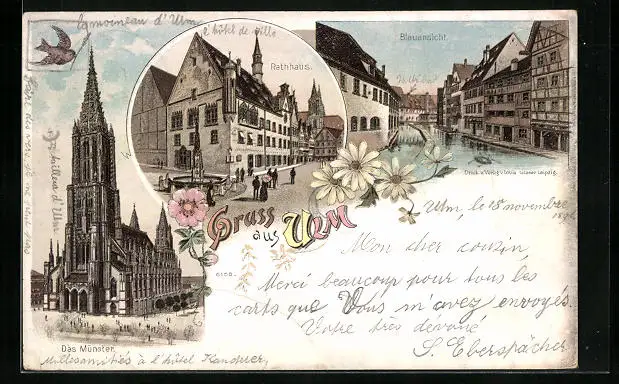 Le moineau d'Ulm
l'hôtel de ville
Rathhaus.
Blauansicht.
Druck u. Verlag v. Louis Glaser Leipzig.
Gruss
aus
ULM
6106.
Das Münster.
d'Ulm
Ulm, le 18 novembre
Mon cher cousin,
Merci beaucoup pour tous les
carts que Vous m'avez envoyés.
Votre très dévoué
S. Eberspächer
Milles amitiés à l'hôtel